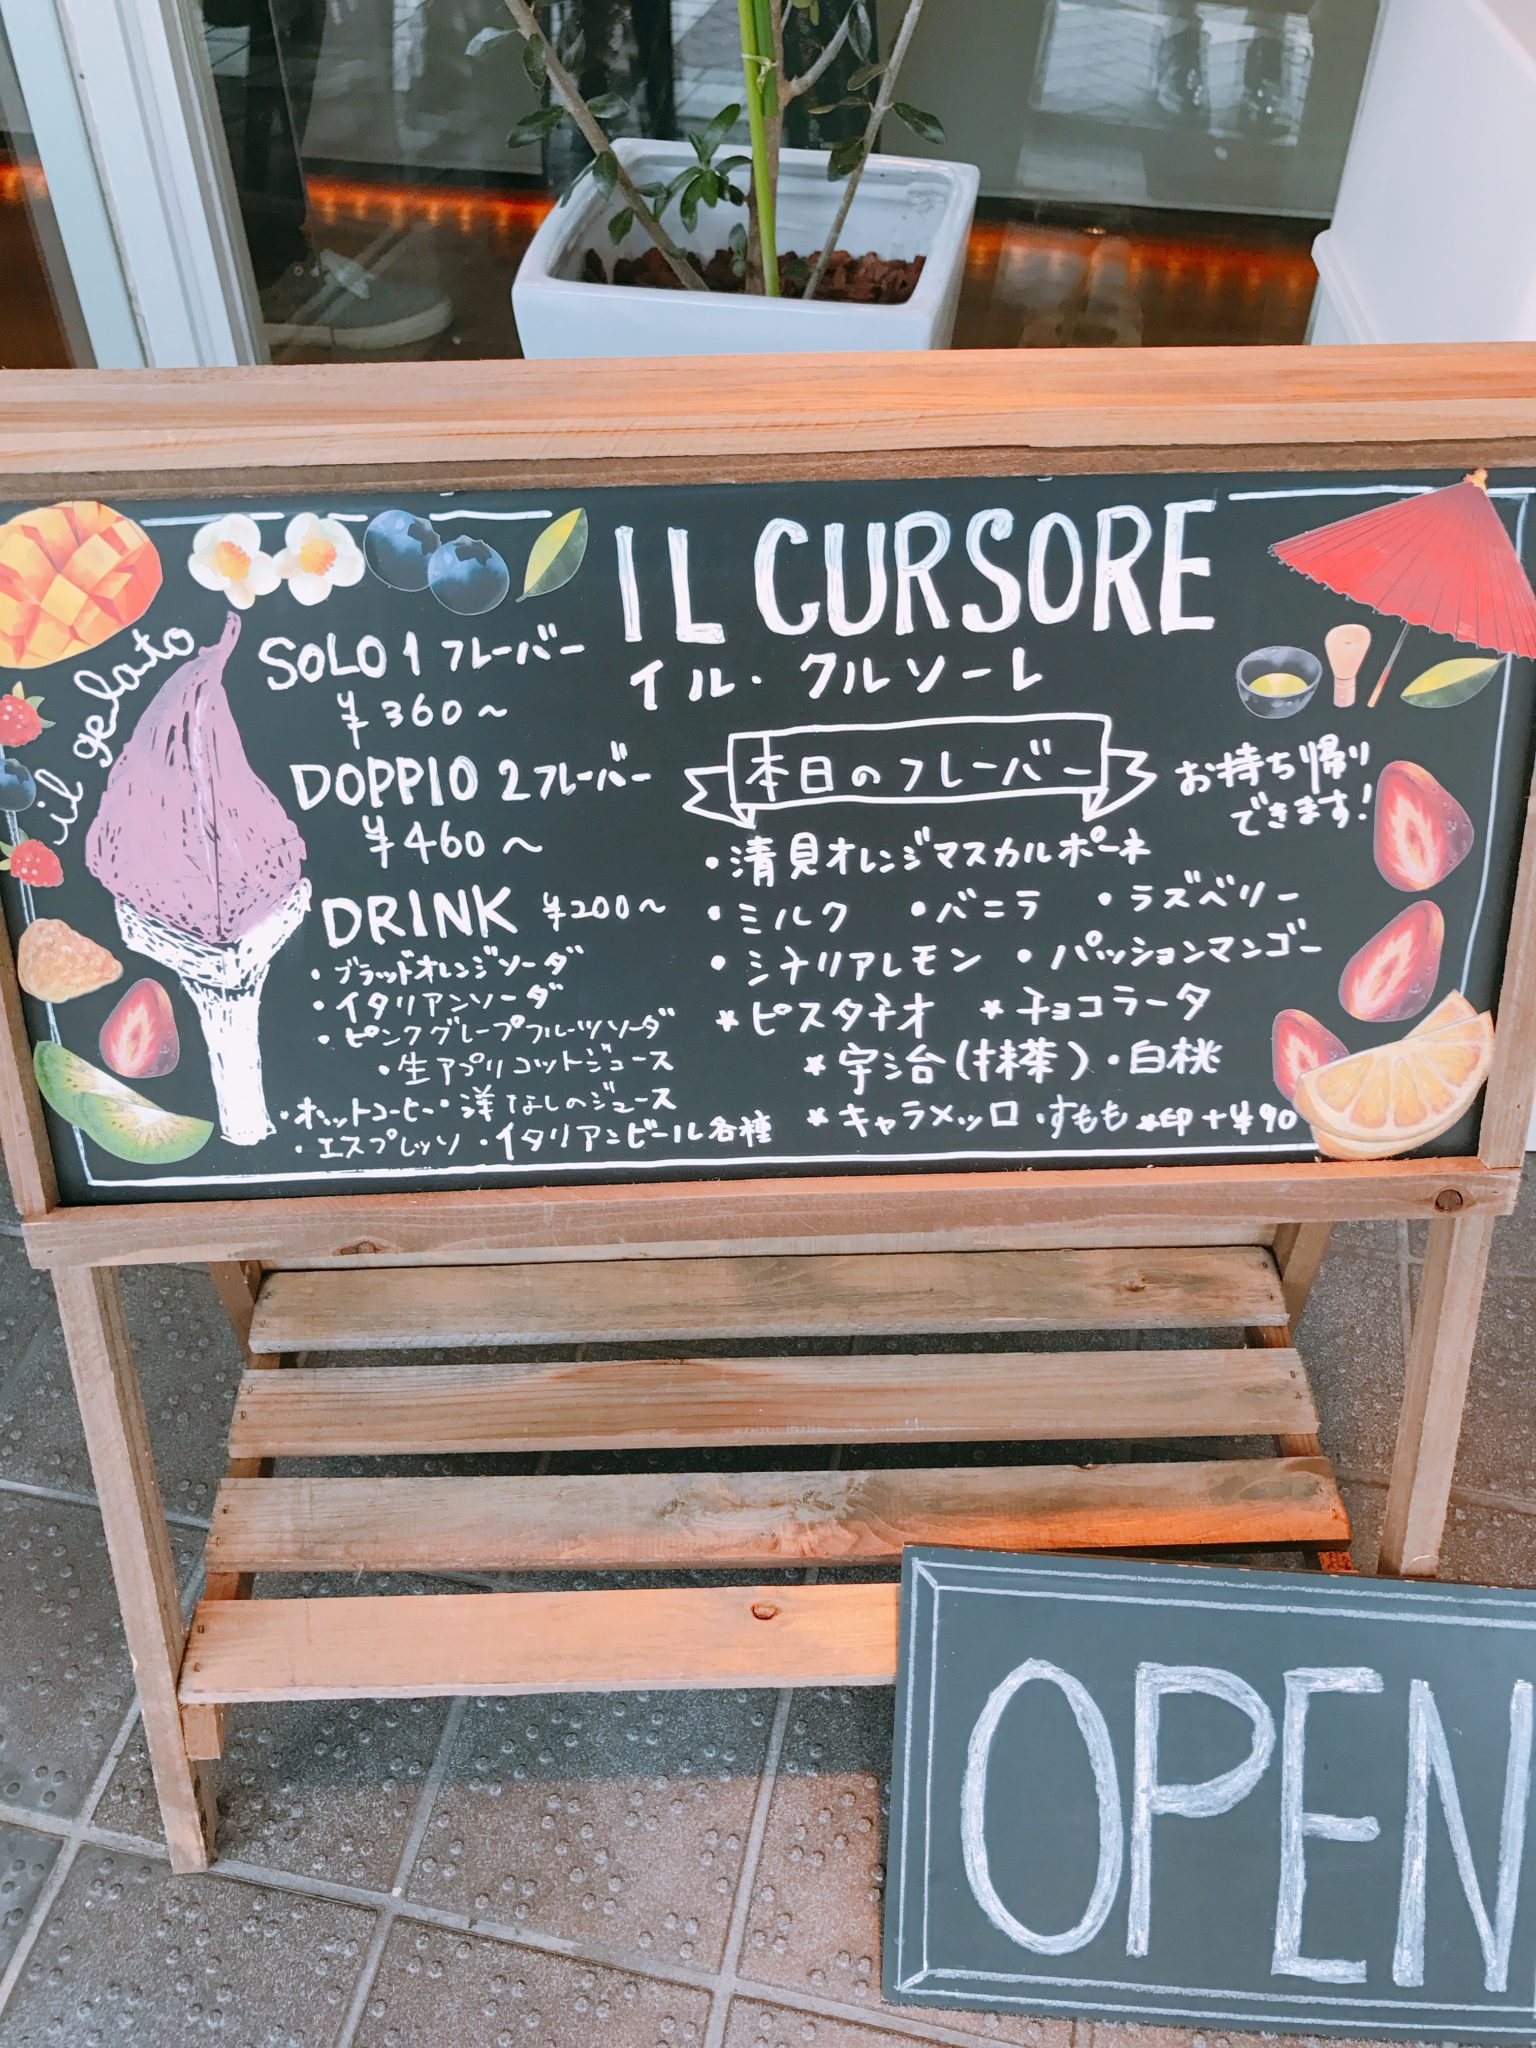 il gelato
SOLO 1 フレーバー
¥360〜
DOPPIO 2フレーバー
¥460〜
DRINK ¥200〜
・ブラッドオレンジソーダ
・イタリアンソーダ
・ピンクグレープフルーツソーダ
・生アプリコットジュース
・ホットコーヒー・洋なしのジュース
・エスプレッソ ・イタリアンビール各種
IL CURSORE
イル・クルソーレ
本日のフレーバー
お持ち帰り
できます!
・清見オレンジマスカルポーネ
・ミルク ・バニラ ・ラズベリー
・シチリアレモン ・パッションマンゴー
*ピスタチオ *チョコラータ
*宇治(抹茶)・白桃
*キャラメッロ ・すもも *印+¥90
OPEN